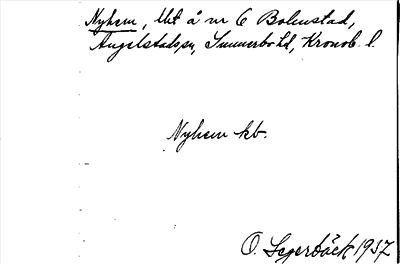 Nyhem, lht å nr 6 Bolmstad,
Angelstads sn, Sunnerbo hd, Kronob. l.
Nyhem kb.
O. Lagerbäck 1937